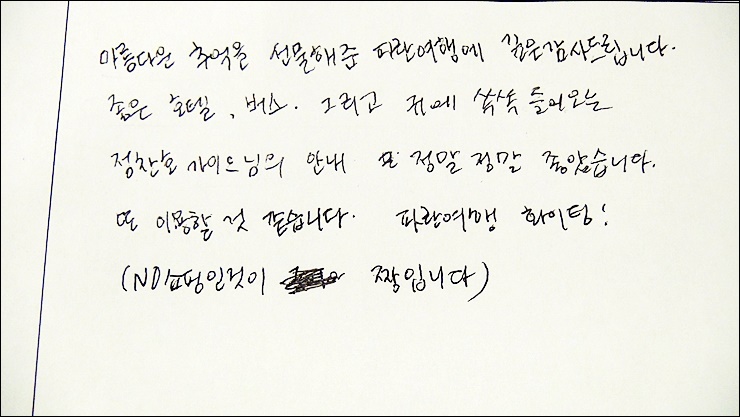 아름다운 추억을 선물해준 파란여행에 깊은감사드립니다.
좋은 호텔, 버스. 그리고 귀에 쏙쏙 들어오는
정찬호 가이드님의 안내 또 정말 정말 좋았습니다.
또 이용할 것 같습니다. 파란여행 화이팅!
(NO쇼핑인것이 짱입니다)